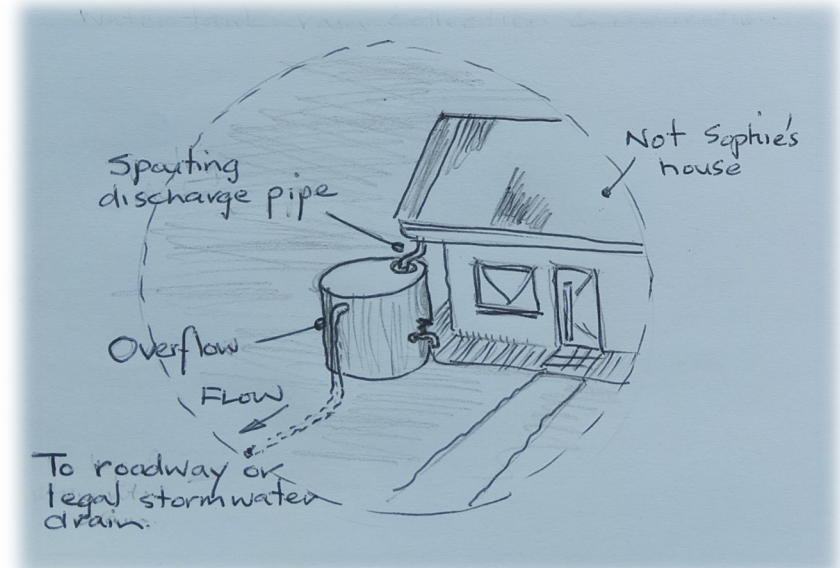 Spouting
discharge pipe
Not Sophie's
house
Overflow
FLOW
To roadway or
legal stormwater
drain.